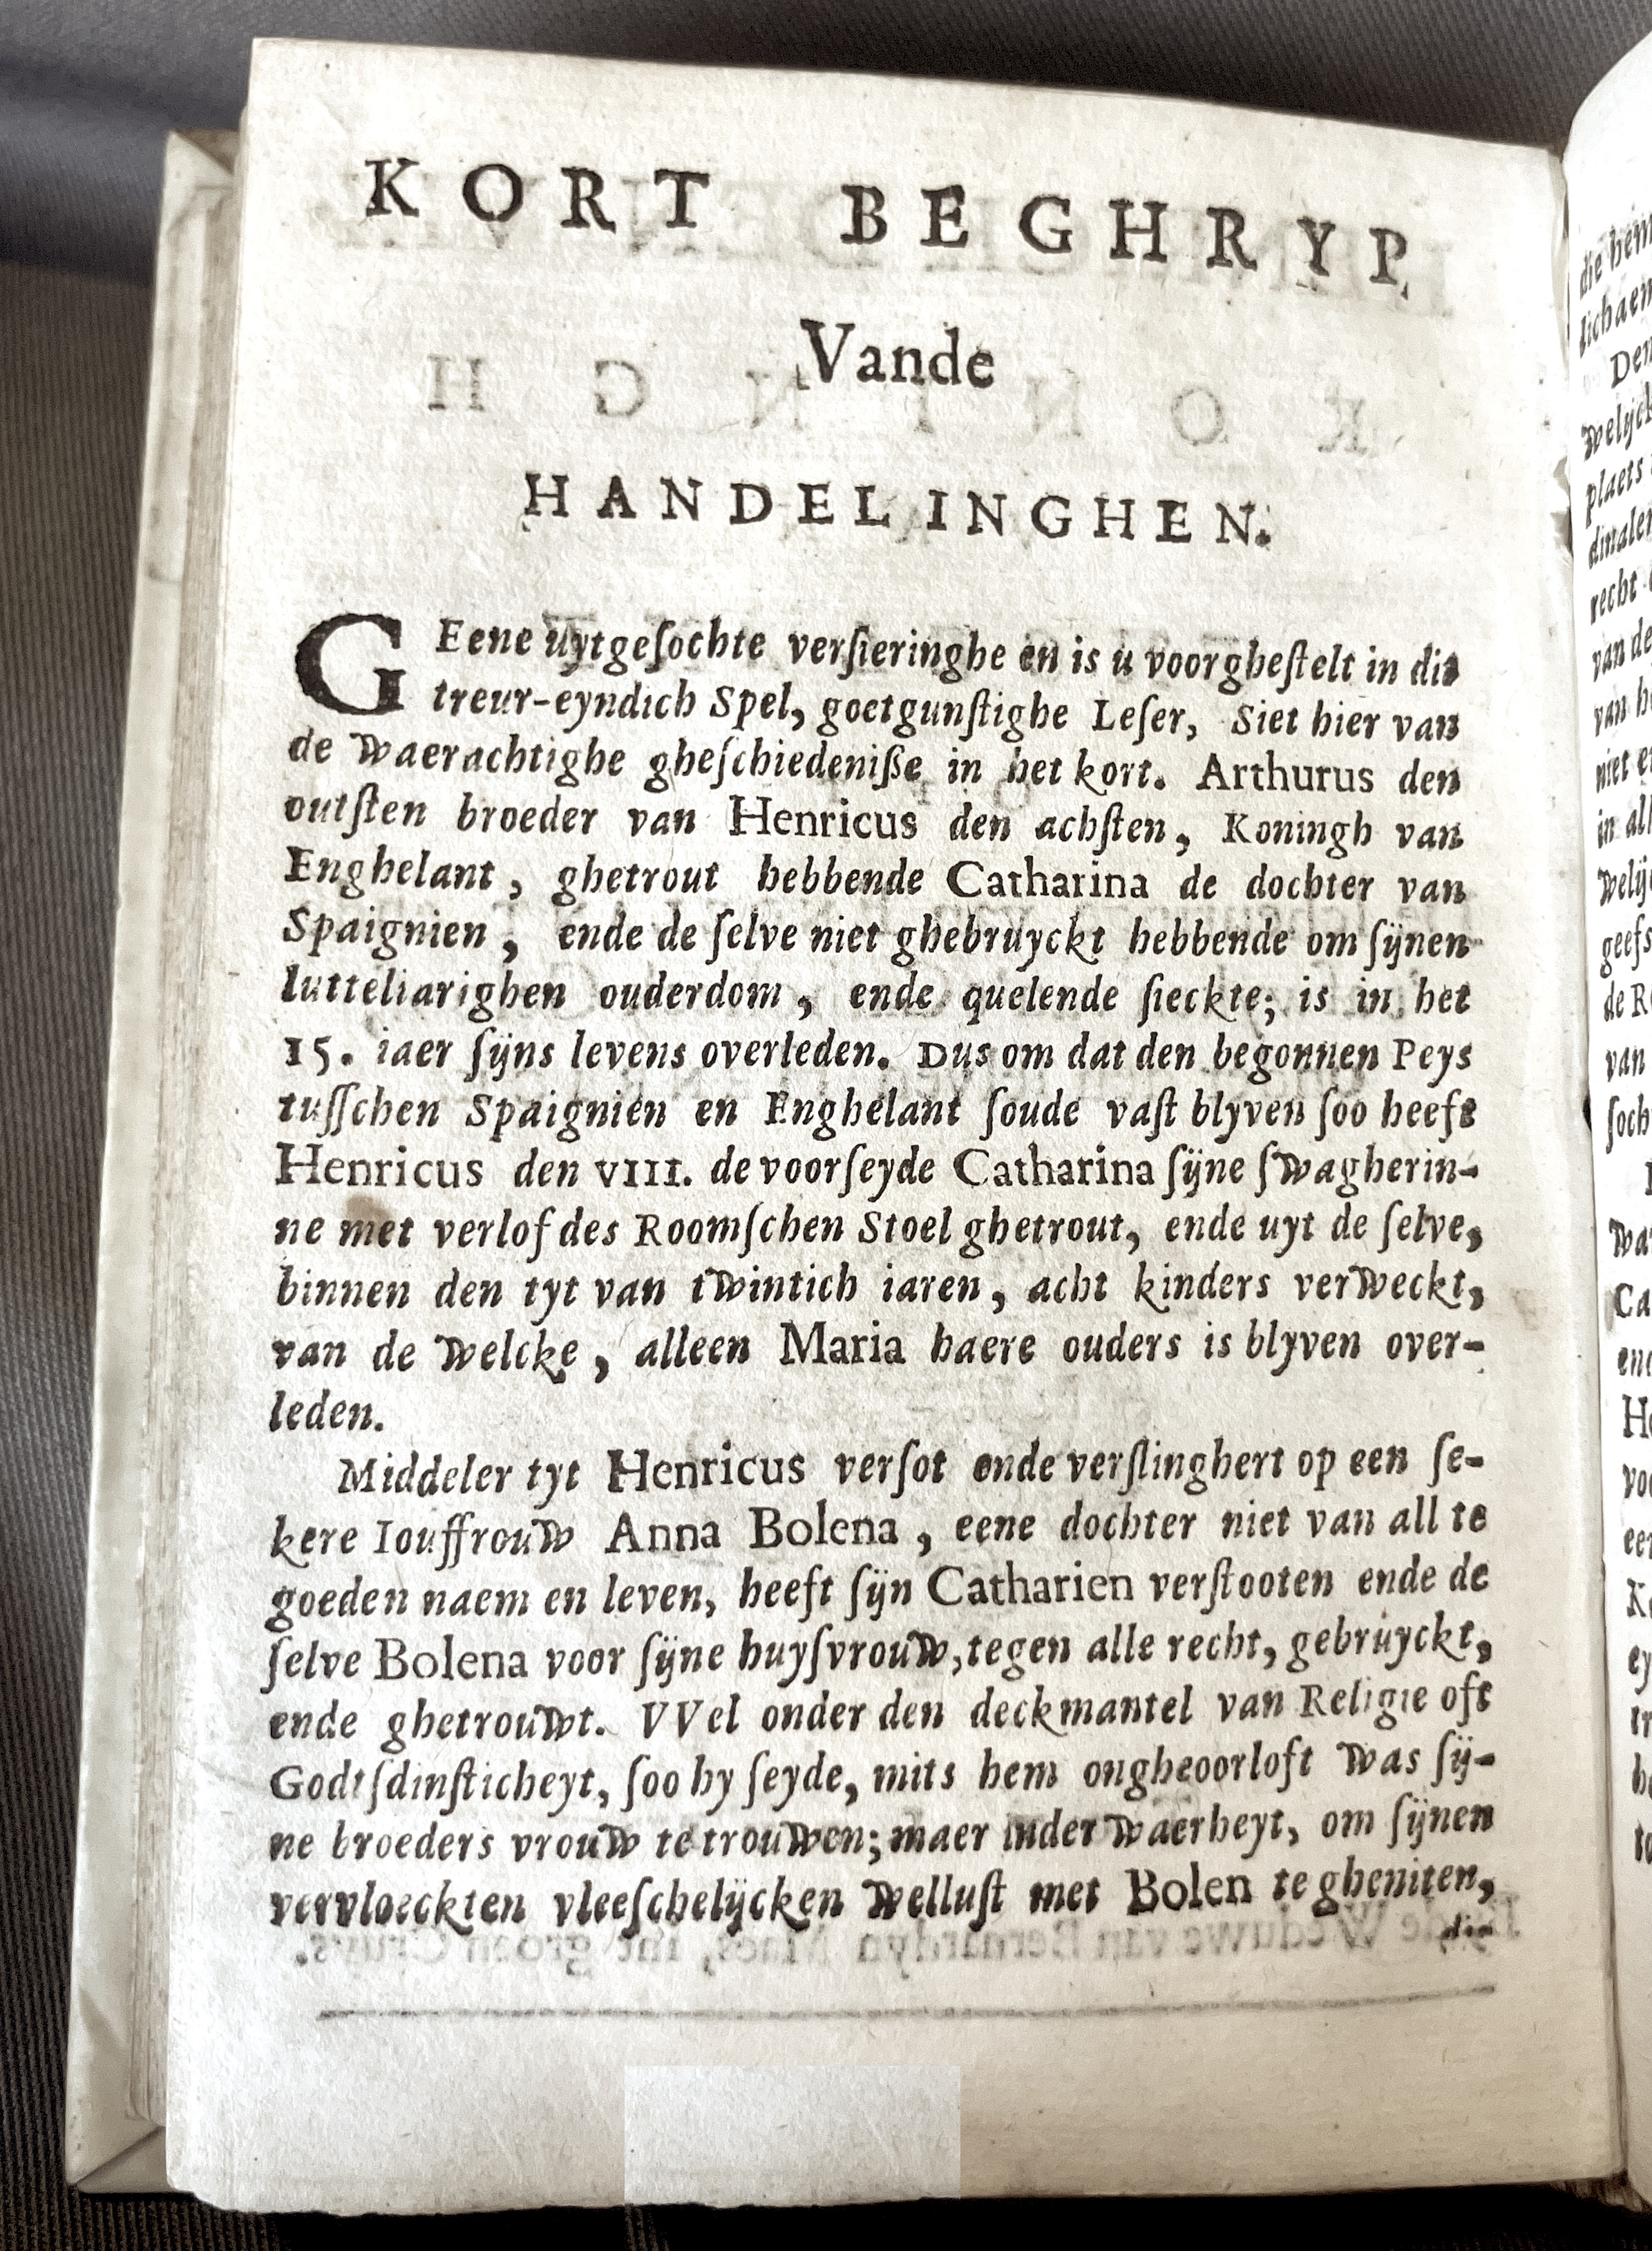 KORT BEGHRYP,
Vande
HANDELINGHEN.
GEene uytgeſochte verſieringhe en is u voorgheſtelt in dit
treur-eyndich Spel, goetgunſtighe Leſer, Siet hier van
de waerachtighe gheſchiedeniße in het kort. Arthurus den
outſten broeder van Henricus den achſten, Koningh van
Enghelant, ghetrout hebbende Catharina de dochter van
Spaignien, ende de ſelve niet ghebruyckt hebbende om ſijnen
lutteliarighen ouderdom, ende quelende ſieckte; is in het
15. iaer ſijns levens overleden. Dus om dat den begonnen Peys
tuſſchen Spaignien en Enghelant ſoude vaſt blyven ſoo heeft
Henricus den VIII. de voorſeyde Catharina ſijne ſwagherin-
ne met verlof des Roomſchen Stoel ghetrout, ende uyt de ſelve,
binnen den tyt van twintich iaren, acht kinders verweckt,
van de welcke, alleen Maria haere ouders is blyven over-
leden.
Middeler tyt Henricus verſot ende verſlinghert op een ſe-
kere Iouffrouw Anna Bolena, eene dochter niet van all te
goeden naem en leven, heeft ſijn Catharien verſtooten ende de
ſelve Bolena voor ſijne huyſvrouw, tegen alle recht, gebruyckt,
ende ghetrouwt. VVel onder den deckmantel van Religie oft
Godtſdinſticheyt, ſoo hy ſeyde, mits hem ongheoorloft was ſij-
ne broeders vrouw te trouwen; maer inder waerheyt, om ſijnen
vervloeckten vleeſchelijcken wellust met Bolen te gheniten,
die